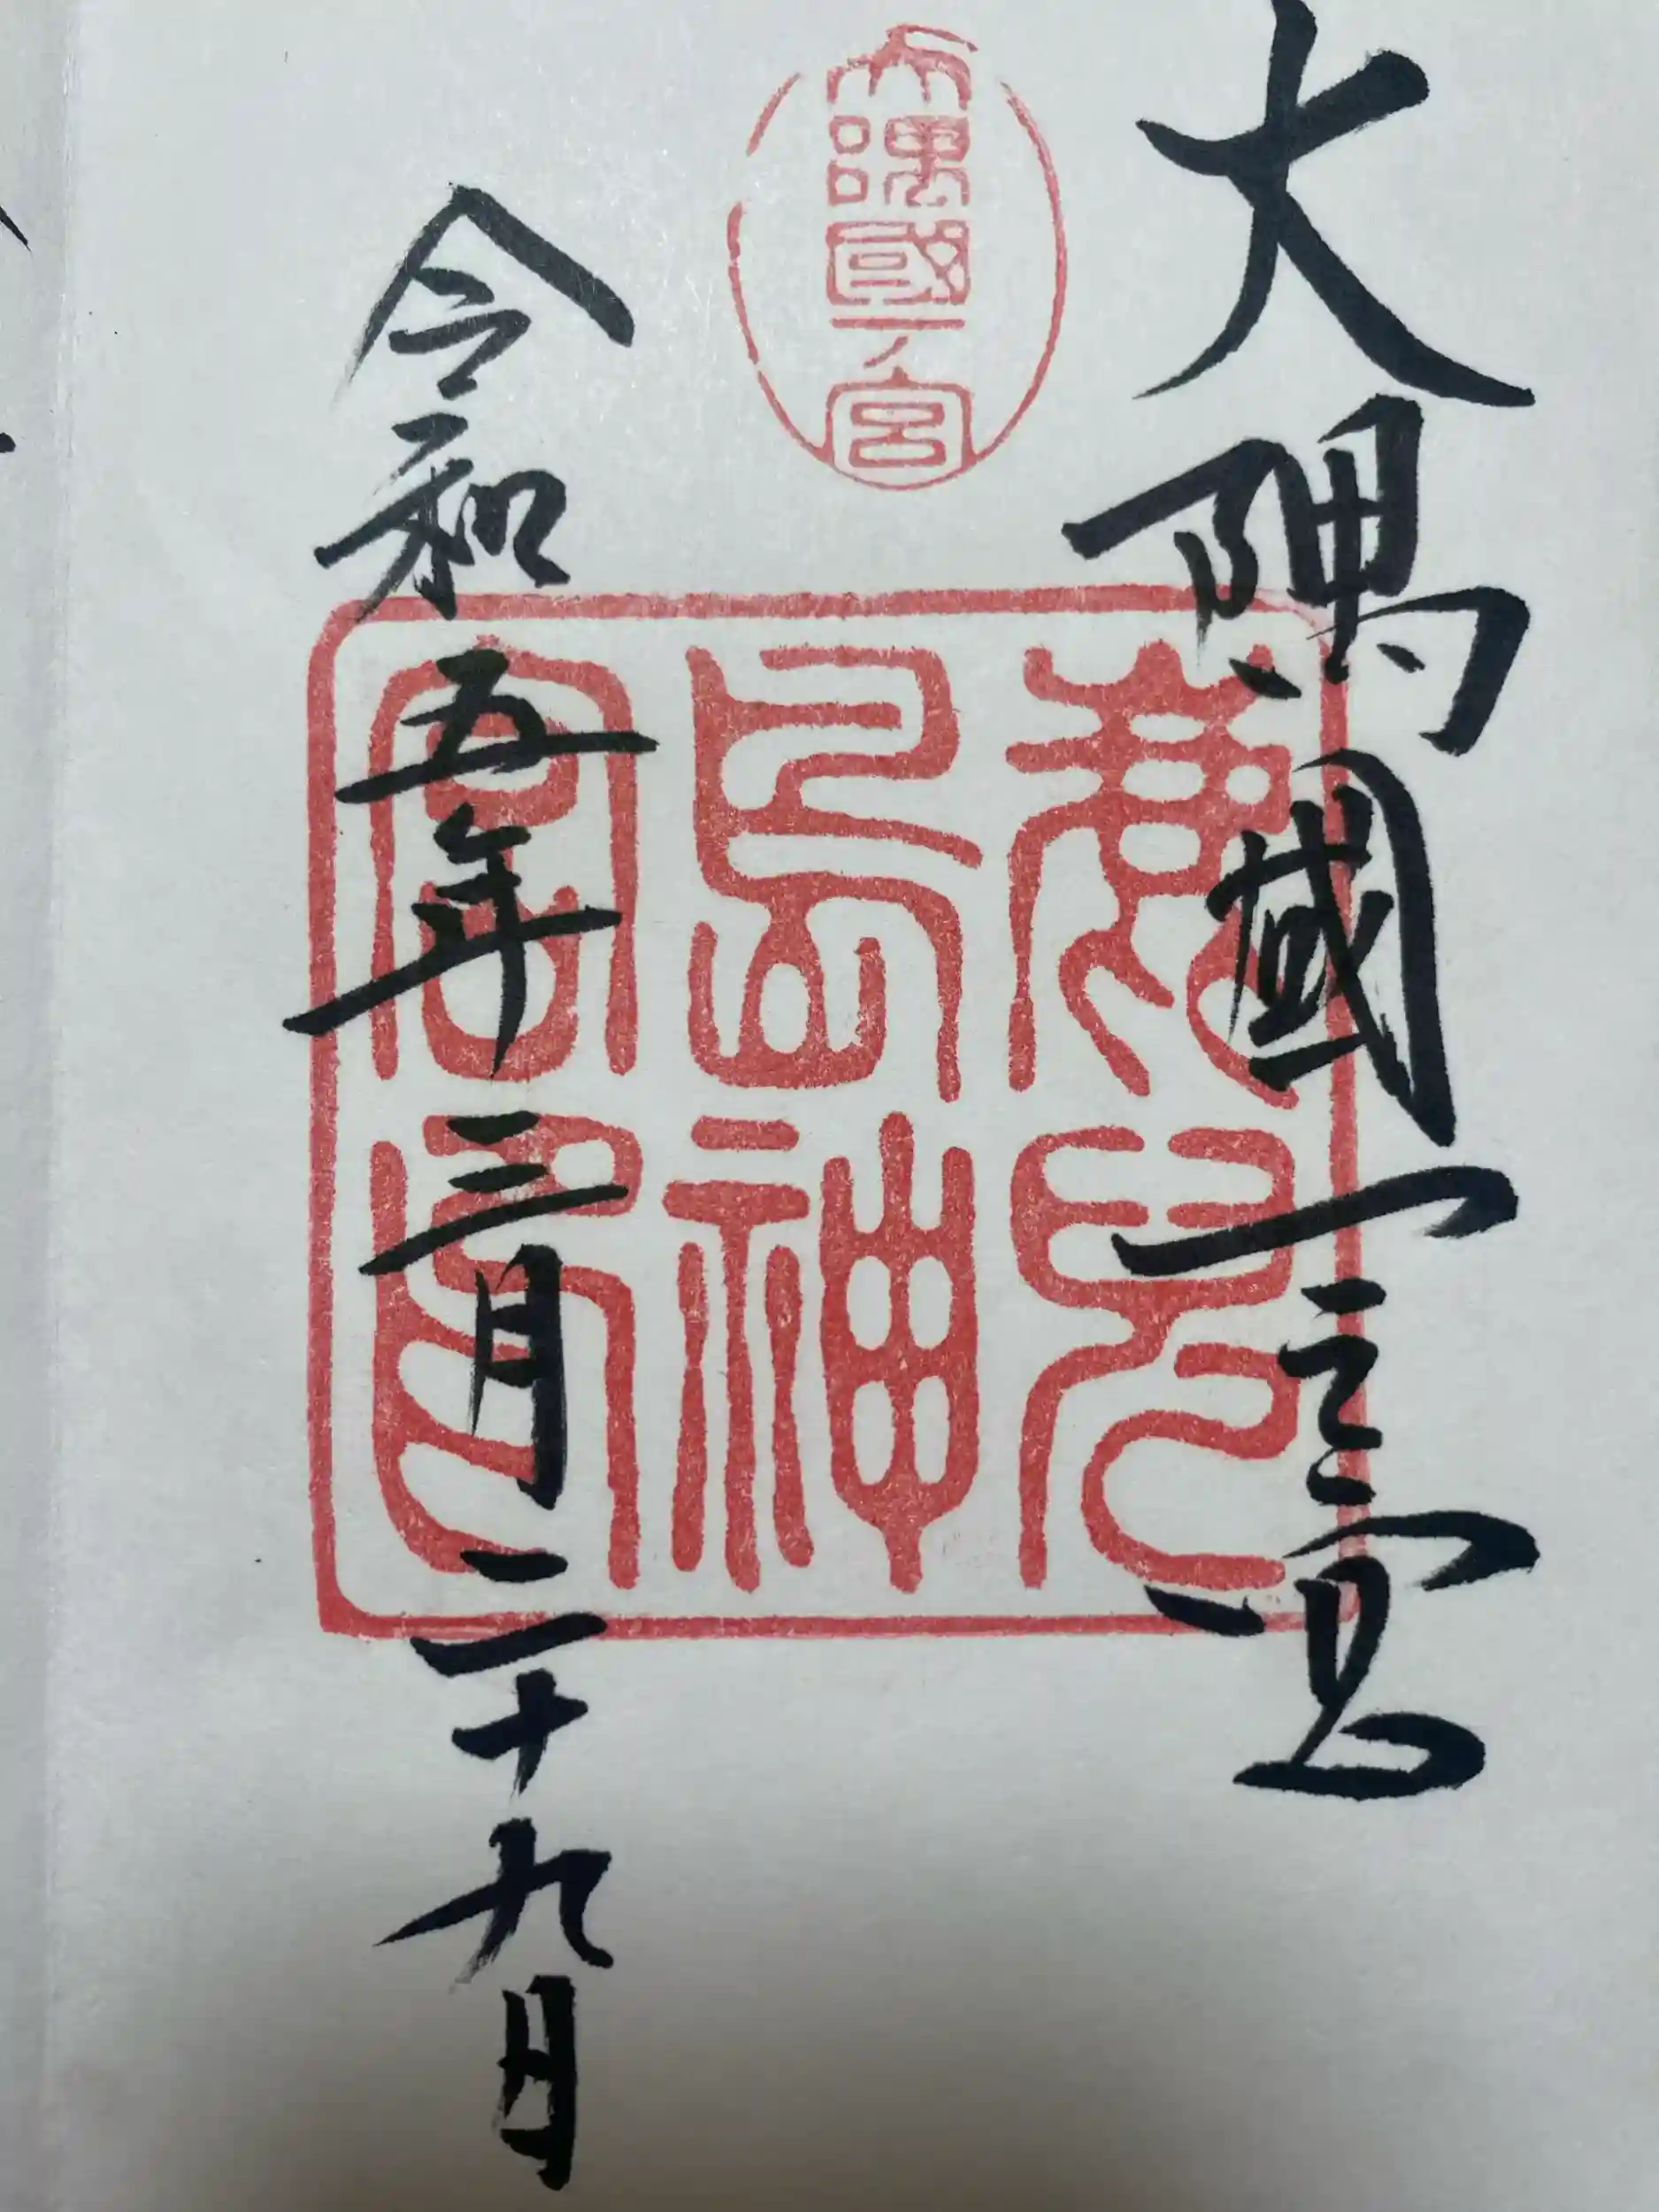 大隅國一之宮
大隅國一ノ宮
鹿兒島神宮印
令和五年三月二十九日